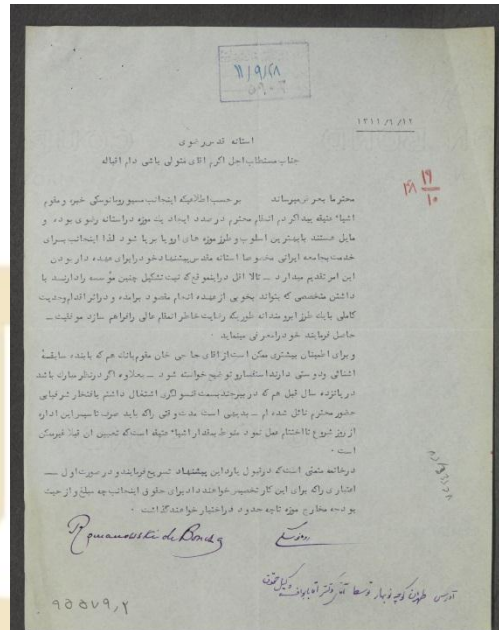 ۱۱/۹/۲۸
۵۹۰۳
۱۳۱۱/۹/۱۹
آستانه قدس رضوی
جناب مستطاب اجل اکرم آقای متولی باشی دام اقباله
۱۹
۱۰
محترما بعرض میرساند برحسب اطلاعیکه اینجانب مسیو رومانوسکی خبره و مقوم
اشیاء عتیقه پیدا کردم آنمقام محترم در صدد ایجاد یک موزه در آستانه رضوی بوده و
مایل هستند با بهترین اسلوب و طرز موزه های اروپا برپا شود لذا اینجانب برای
خدمت بجامعه ایرانی مخصوصا آستانه مقدس پیشنهاد خود را برای عهده دار بودن
این امر تقدیم میدارد – تا لااقل در اینموقع که نیت تشکیل چنین مؤسسه را دارند با
داشتن متخصصی که بتواند بخوبی از عهده انجام مقصود برآمده و در اثر اقدام وجدیت
کاملی بایک طرز آبرومندانه طوریکه رضایت خاطر آنمقام عالی را فراهم سازد موفقیت –
حاصل فرمایند خود را معرفی مینماید •
و برای اطمینان بیشتری ممکن است از آقای حاجی خان مقوم باشی هم که با بنده سابقه
آشنائی و دوستی دارند استفسار و توضیح خواسته شود – بعلاوه اگر در نظر مبارک باشد
در پانزده سال قبل هم که در بیرجند بسمت قنسولگری اشتغال داشتم بافتخار شرفیابی
حضور محترم نائل شده ام – بدیهی است مدت وقتی را که باید صرف تاسیس این اداره
از روز شروع تا اختتام عمل نمود منوط بمقدار اشیاء عتیقه است که تعیین آن قبلا غیرممکن
است •
در خاتمه متمنی است که در قبول یا رد این پیشنهاد تسریع فرمایند و در صورت اول –
اعتباری را که برای این کار تخصیص خواهند داد برای حقوق اینجانب چه مبلغ و از حیث
بودجه مخارج موزه تا چه حدود در اختیار خواهند گذاشت •
Romanowski de Boncza
آدرس طهران کوچه نوبهار توسط آقای دکتر آقابایاف وکیل حقوق
۹۵۵۷۹٫۲